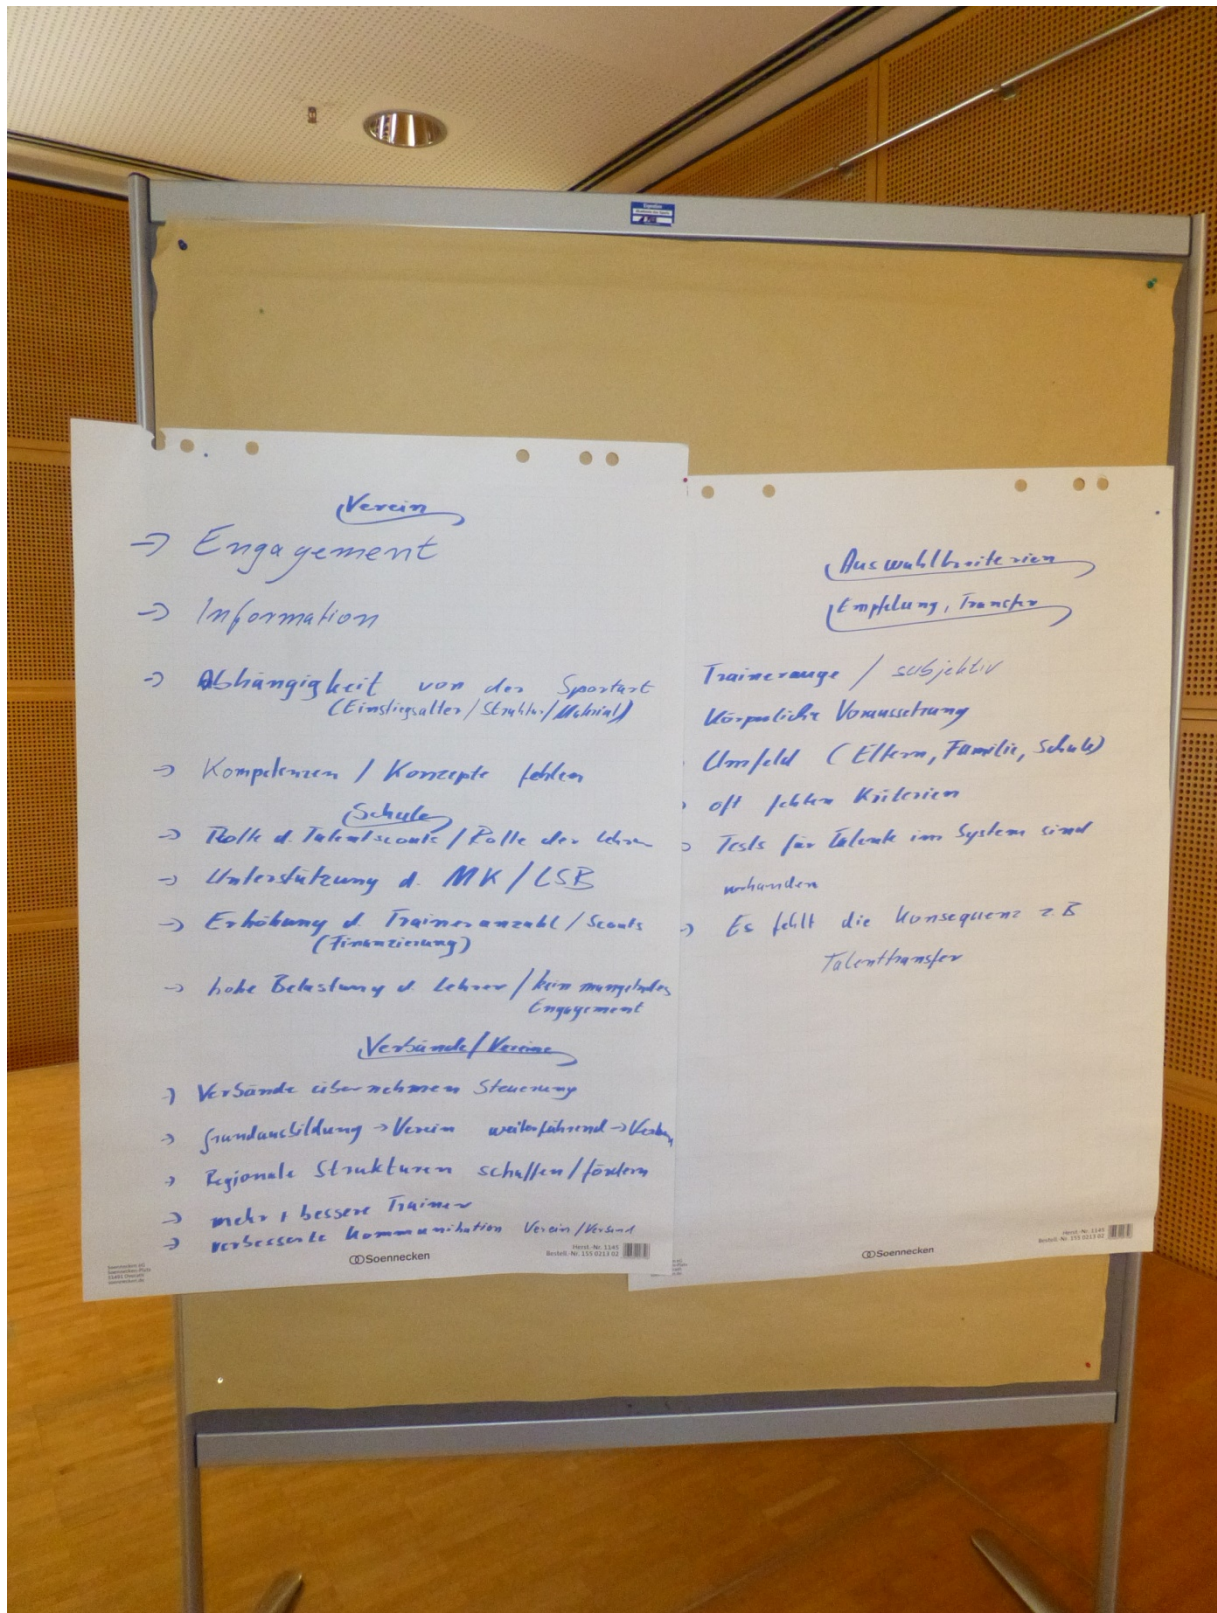 Verein
→ Engagement
→ Information
→ Abhängigkeit von der Sportart
(Einstiegsalter / Struktur / Material)
→ Kompetenzen / Konzepte fehlen
Schule
→ Rolle d. Talentscouts / Rolle der Lehrer
→ Unterstützung d. MK / LSB
→ Erhöhung d. Traineranzahl / Scouts
(Finanzierung)
→ hohe Belastung d. Lehrer / kein mangelndes
Engagement
Verbände / Vereine
→ Verbände übernehmen Steuerung
→ Grundausbildung → Verein weiterführend → Verban
→ Regionale Strukturen schaffen / fördern
→ mehr + bessere Trainer
→ verbesserte Kommunikation Verein / Verband
Soennecken
Herst.-Nr. 1145
Bestell.-Nr. 155 0213 02
Auswahlkriterien
Empfelung, Transfer
Trainerauge / subjektiv
Körperliche Voraussetzung
Umfeld (Eltern, Familie, Schule)
oft fehlen Kriterien
Tests für Talente im System sind
vorhanden
→ Es fehlt die Konsequenz z.B
Talenttransfer
Soennecken
Herst.-Nr. 1145
Bestell.-Nr. 155 0213 02